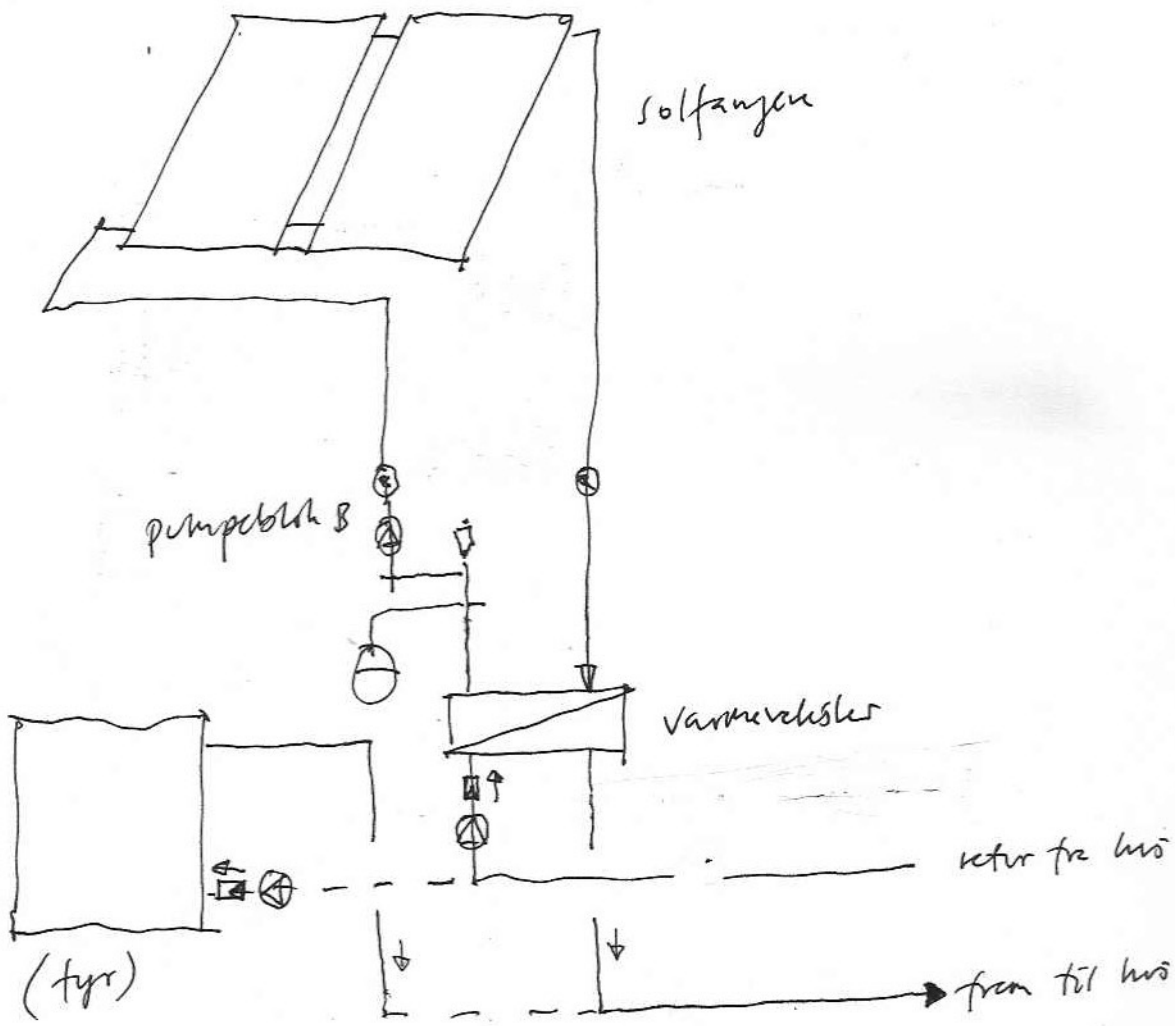 solfangere
pumpeblok B
varmeveksler
retur fra hus
(fyr)
frem til hus